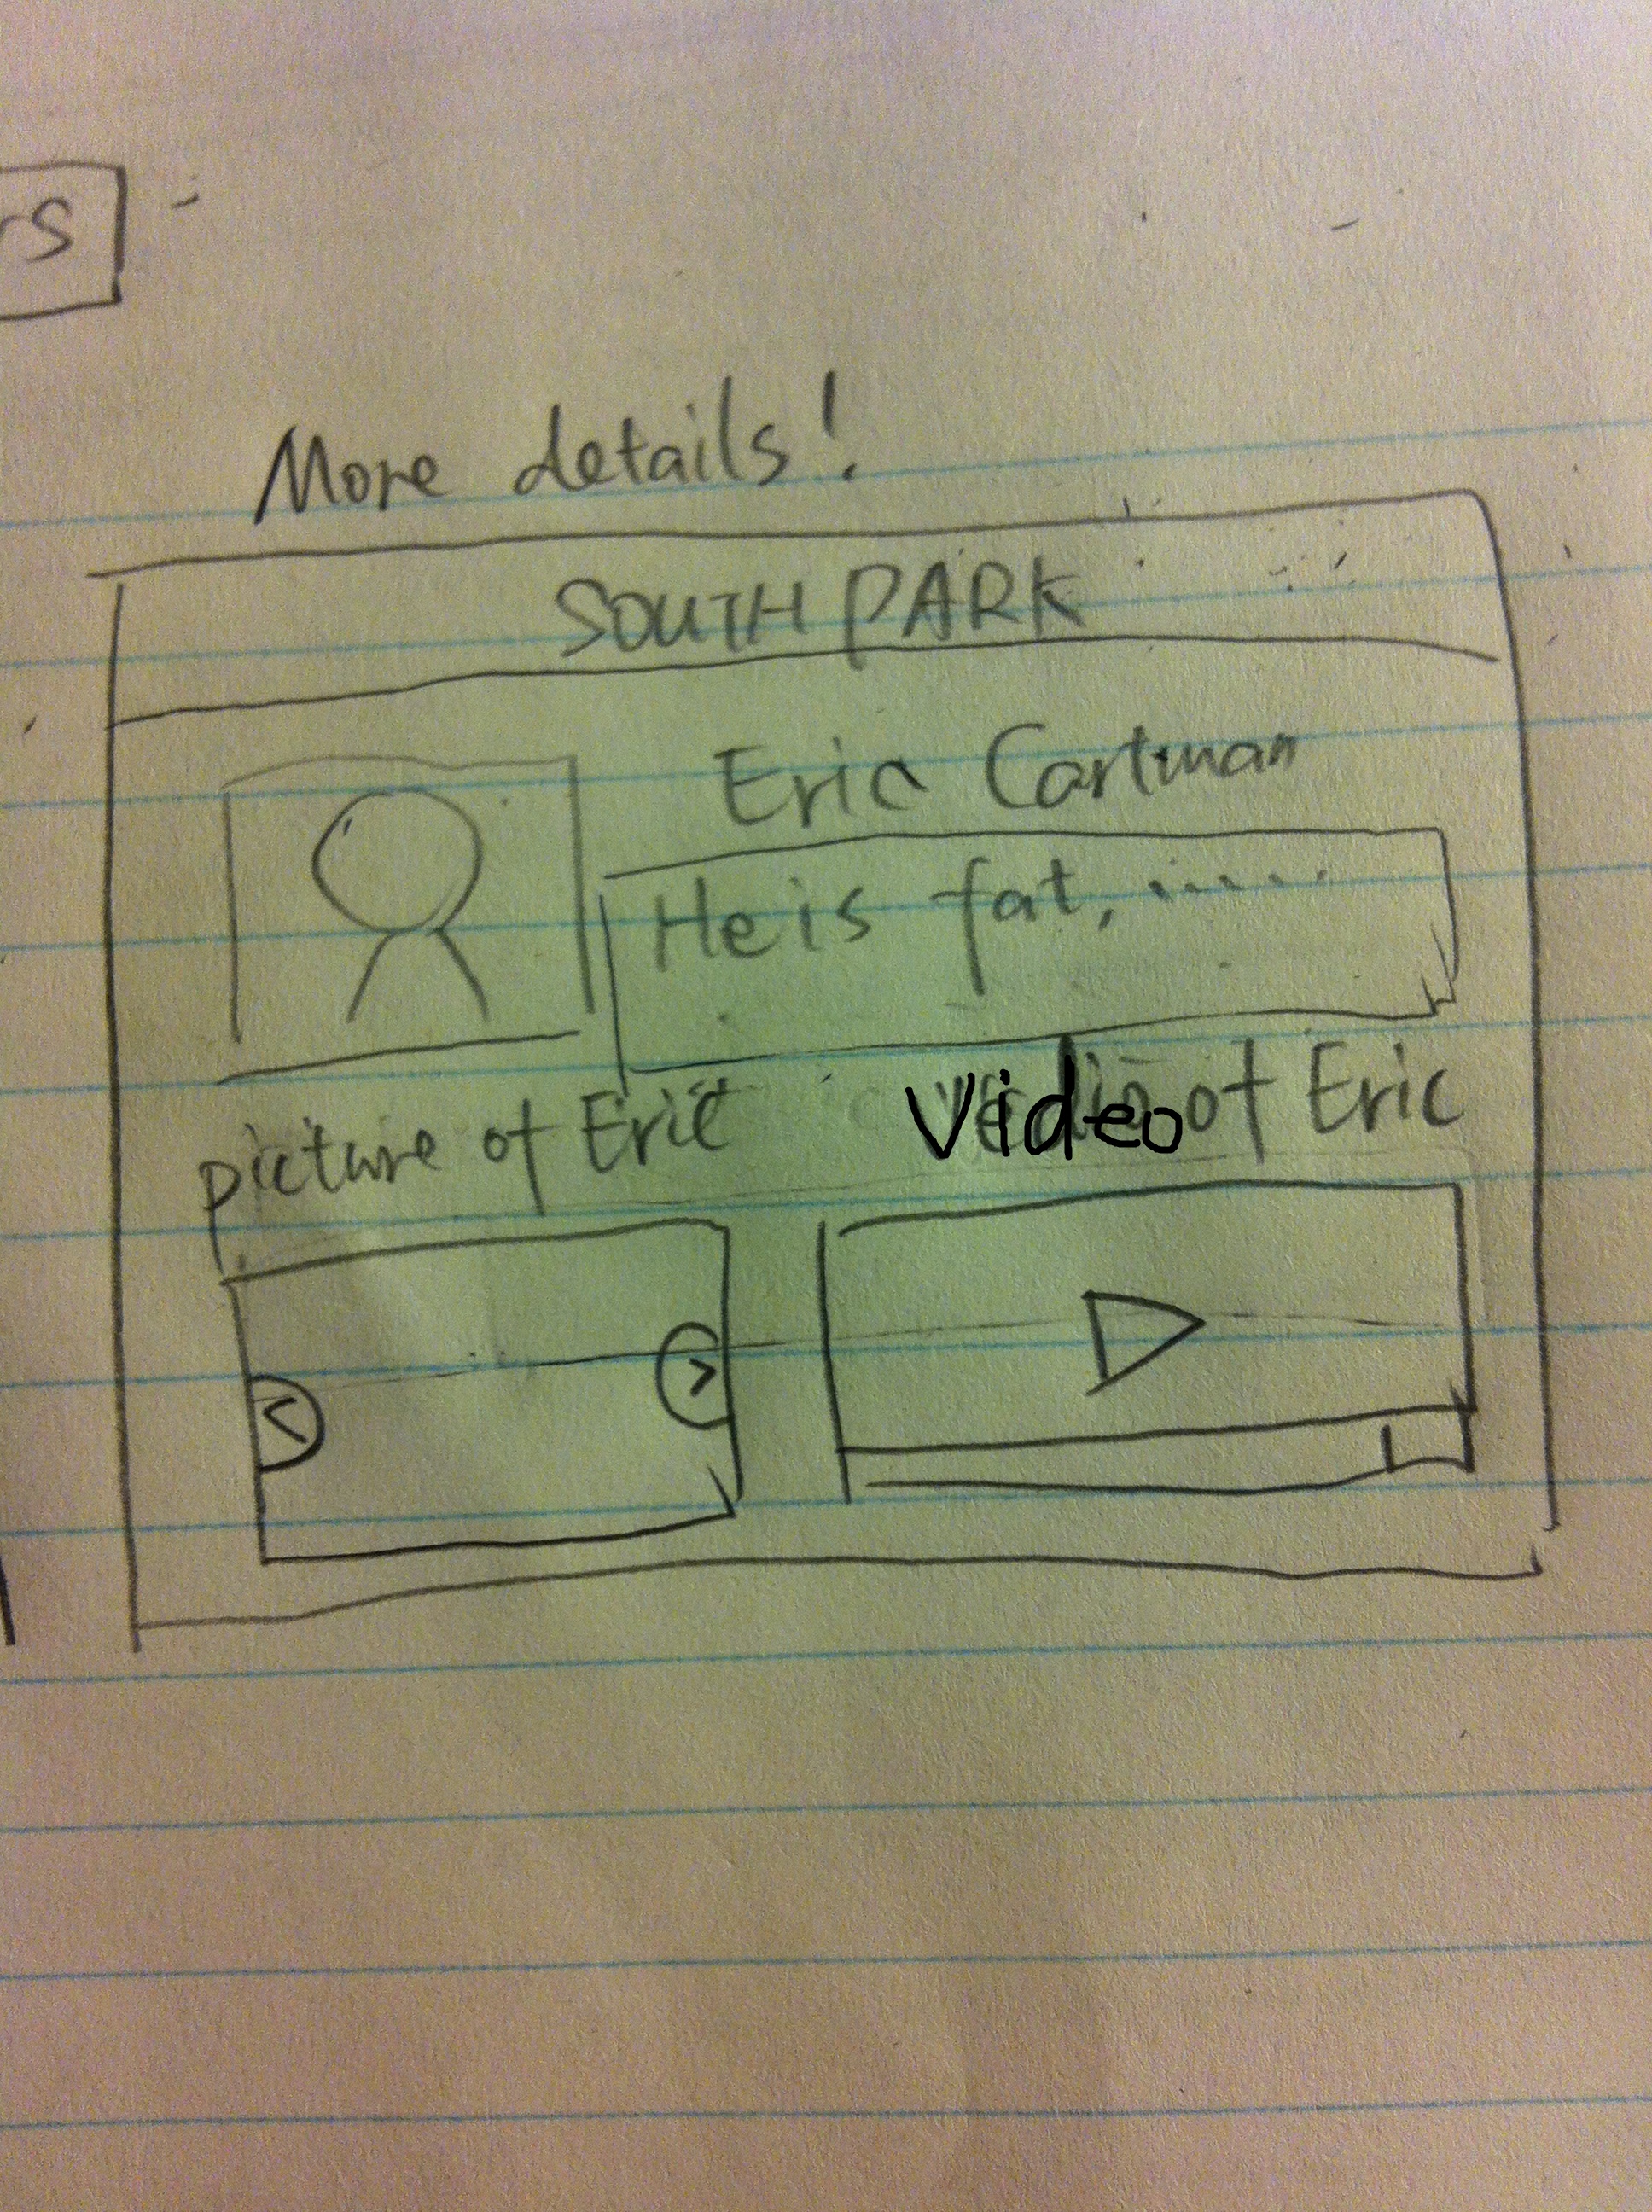 rs
More details!
SOUTH PARK
Eric Cartman
He is fat, ......
picture of Eric
Video of Eric
<
>